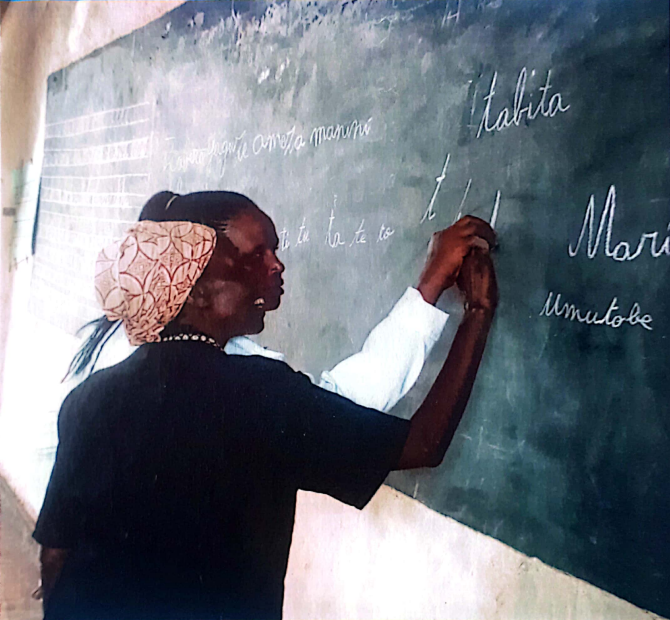 tabita
ameza manini
ti tu ta te to
t
Mari
umutobe